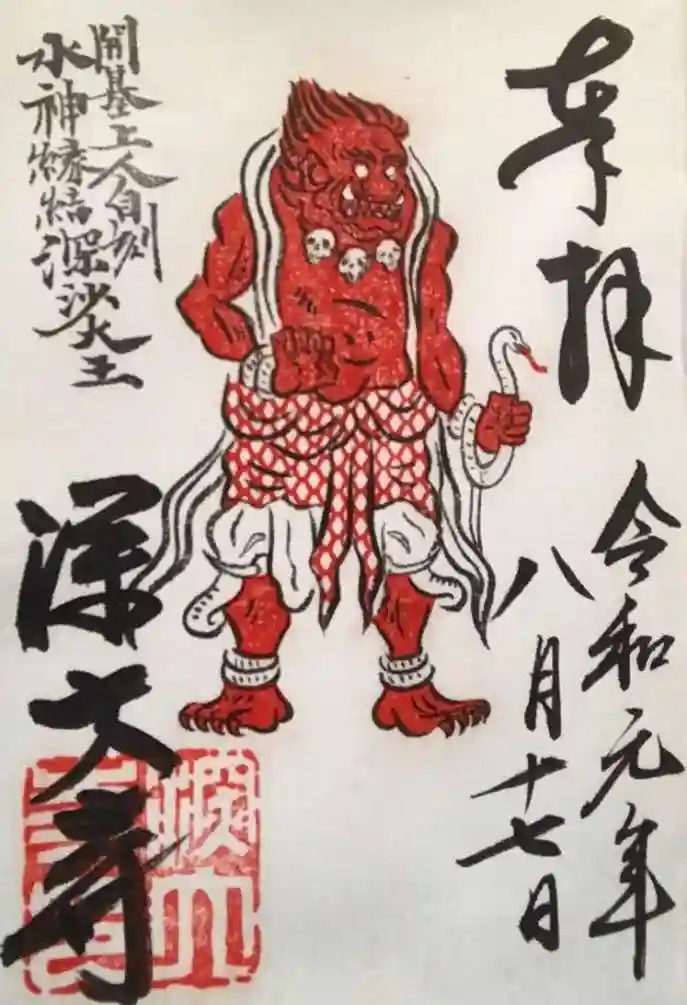 奉拝
令和元年
八月十七日
開基上人自刻
水神縁結深沙大王
深大寺
深大寺